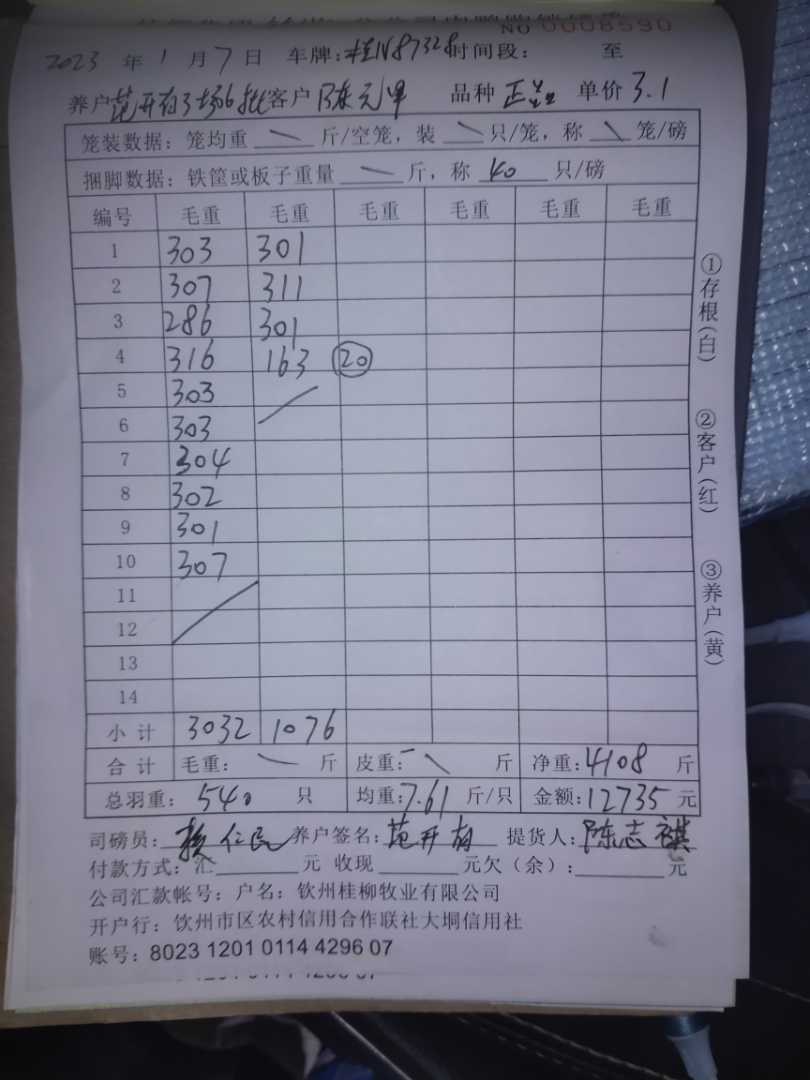 NO 0008590
2023 年 1 月 7 日 车牌:桂N87328 时间段: 至
养户 范开有3场6批 客户 陈元甲 品种 正 单价 3.1
笼装数据:笼均重 斤/空笼,装 只/笼,称 笼/磅
捆脚数据:铁筐或板子重量 斤,称 40 只/磅
编号 毛重 毛重 毛重 毛重 毛重 毛重
1 303 301
2 307 311
3 286 301
4 316 163 20
5 303
6 303
7 304
8 302
9 301
10 307
11
12
13
14
小计 3032 1076
合计 毛重: 斤 皮重: 斤 净重:4108 斤
总羽重: 540 只 均重:7.61 斤/只 金额:12735 元
司磅员: 仁民 养户签名: 范开有 提货人:陈志祺
付款方式:汇 元 收现 元欠(余): 元
公司汇款帐号:户名:钦州桂柳牧业有限公司
开户行:钦州市区农村信用合作联社大垌信用社
账号:8023 1201 0114 4296 07
①存根(白)
②客户(红)
③养户(黄)